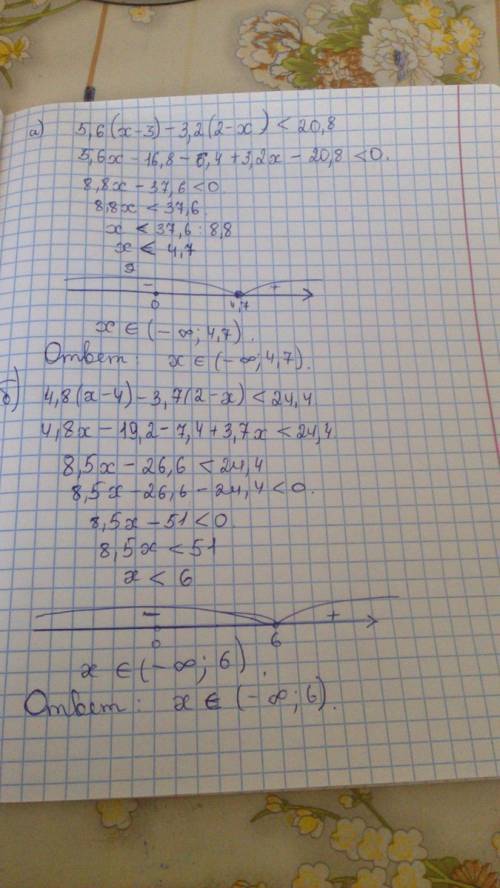 а) 5,6(x-3)-3,2(2-x)<20,8
5,6x-16,8-6,4+3,2x-20,8<0.
8,8x-37,6<0.
8,8x<37,6.
x<37,6:8,8
x<4,7
- +
0 4,7
x∈(-∞;4,7).
Ответ: x∈(-∞;4,7).
б) 4,8(x-4)-3,7(2-x)<24,4
4,8x-19,2-7,4+3,7x<24,4
8,5x-26,6<24,4
8,5x-26,6-24,4<0.
8,5x-51<0
8,5x<51
x<6
- +
0 6
x∈(-∞;6).
Ответ: x∈(-∞;6).